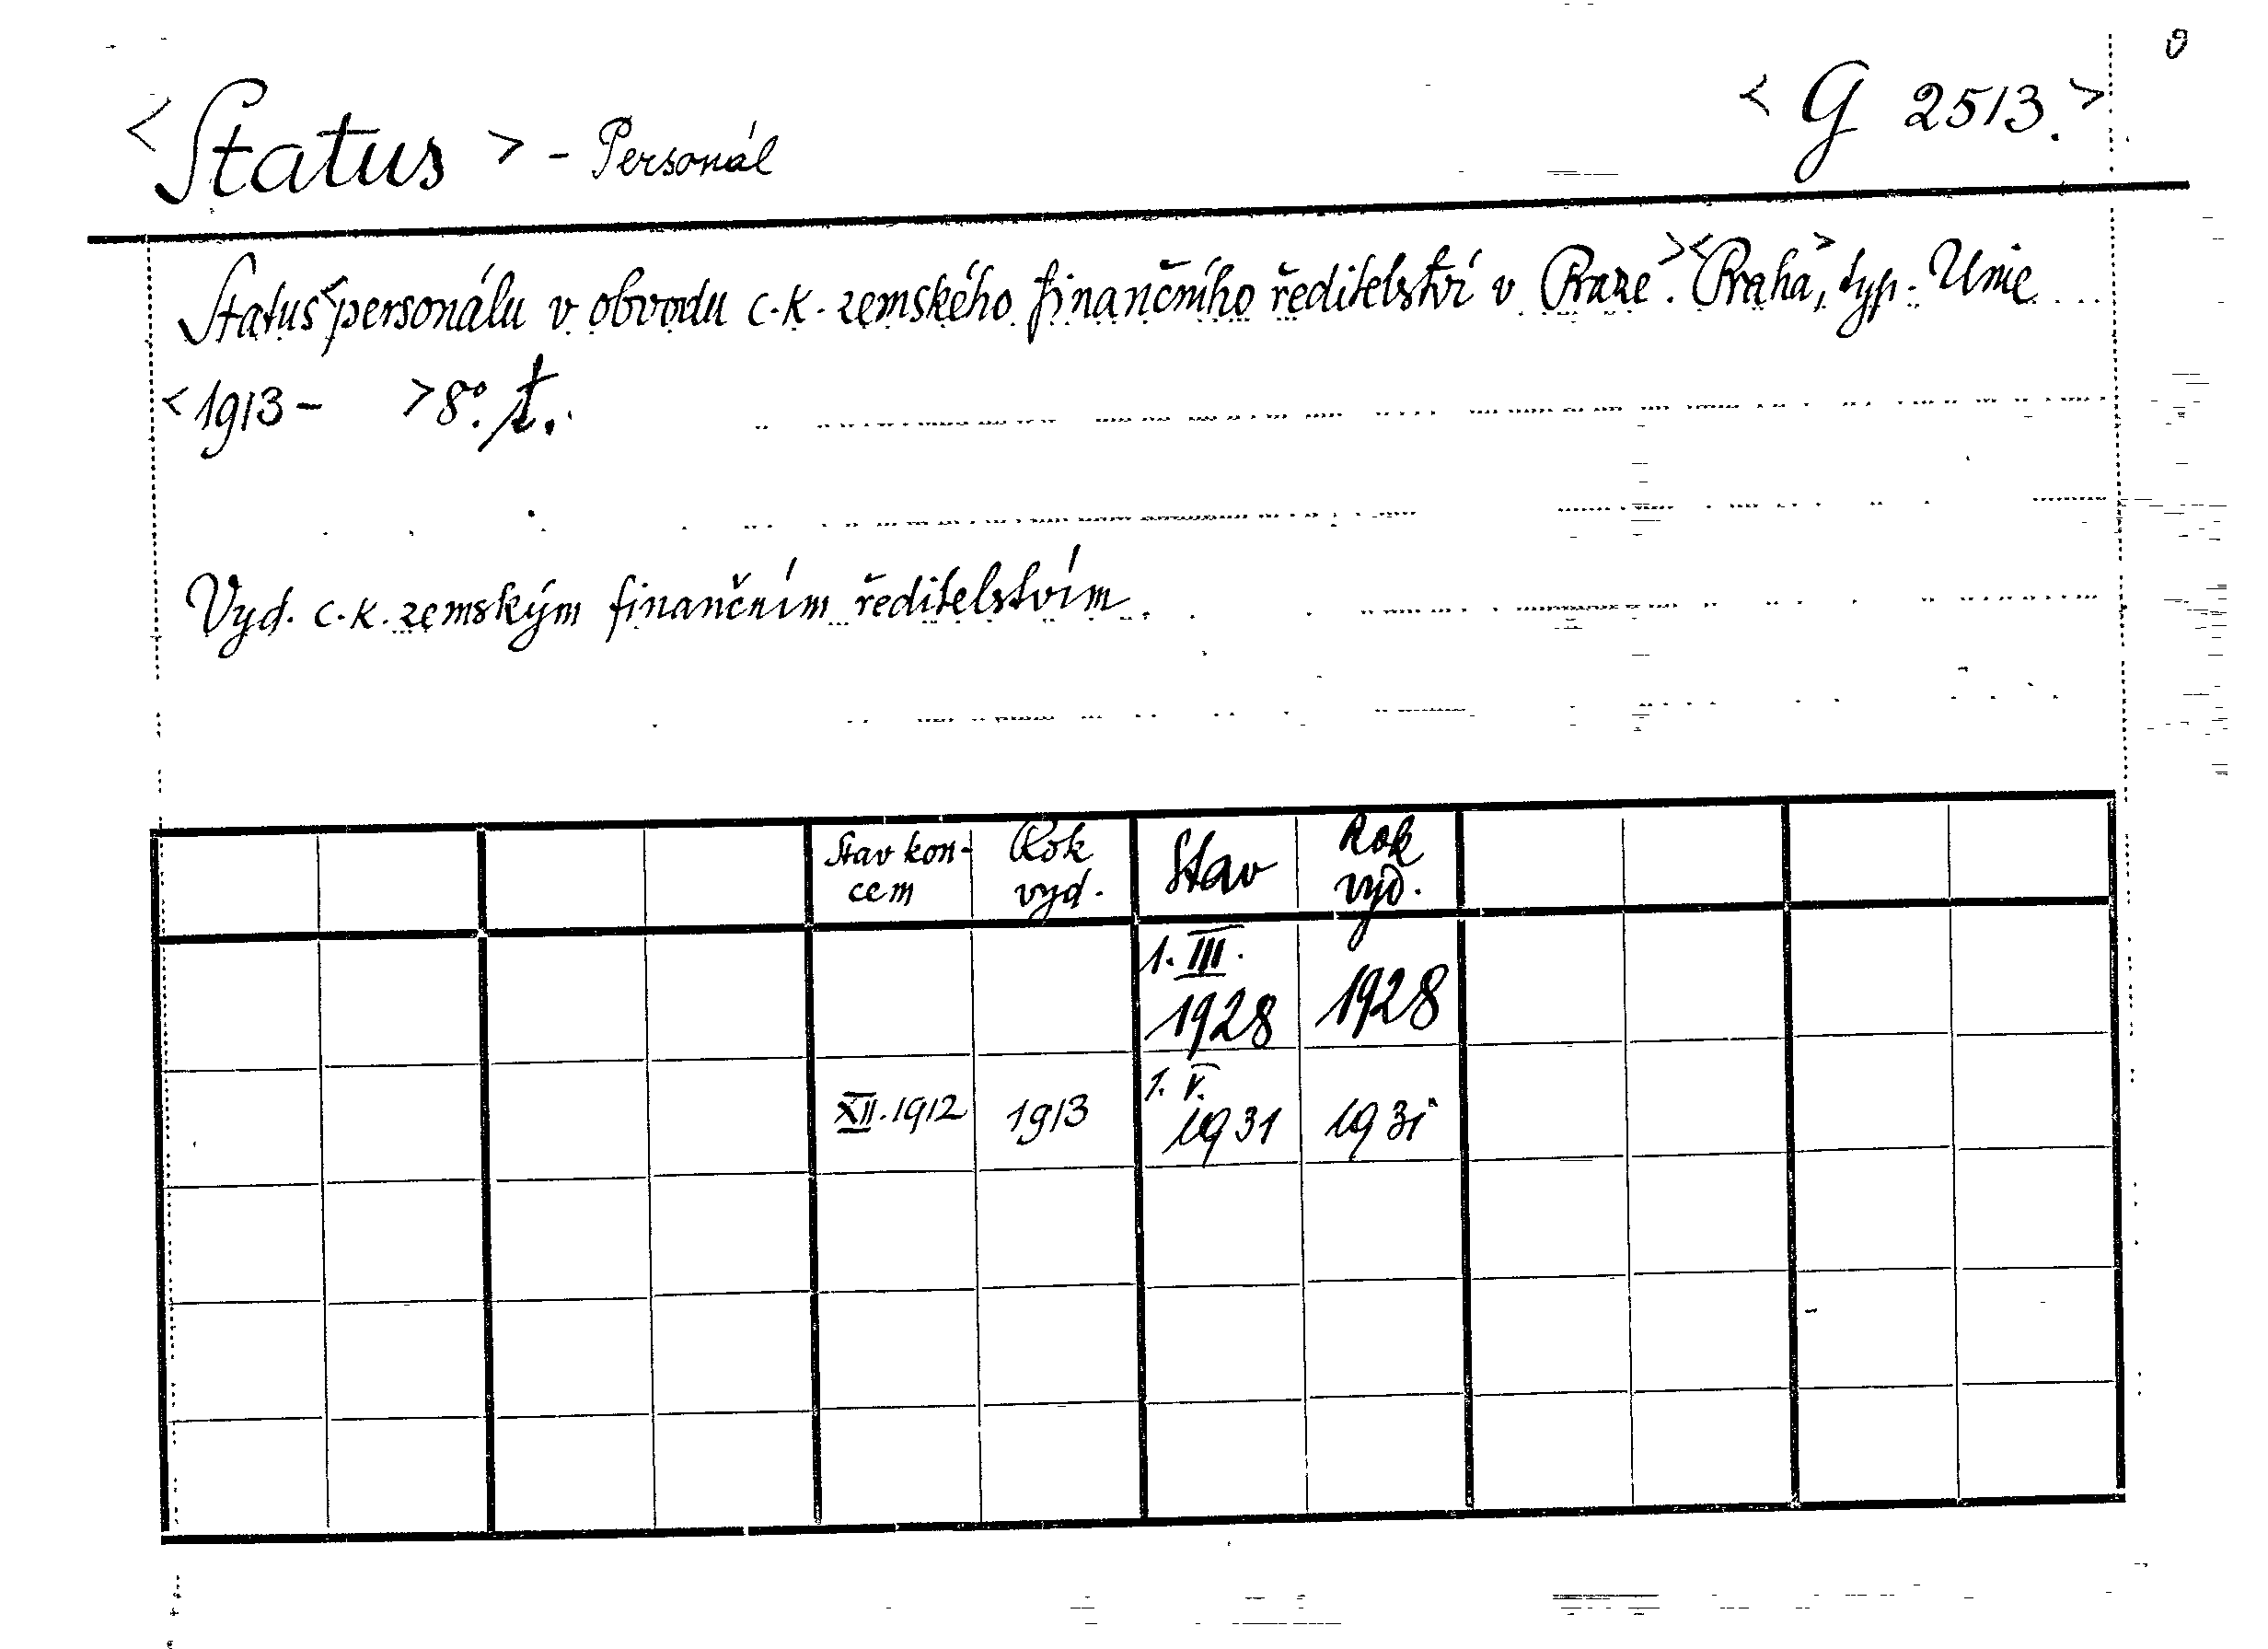 <Status> - Personál
<G 2513.>
Status <personálu v obvodu c.k. zemského finančního ředitelství v Praze.> <Praha,> typ. Unie
<1913 - > 8°. t.
Vyd. c.k. zemským finančním ředitelstvím.
Stav kon- Rok Stav Rok
cem vyd. vyd.
1. III.
1928 1928
1. V.
XII. 1912 1913 1931 1931